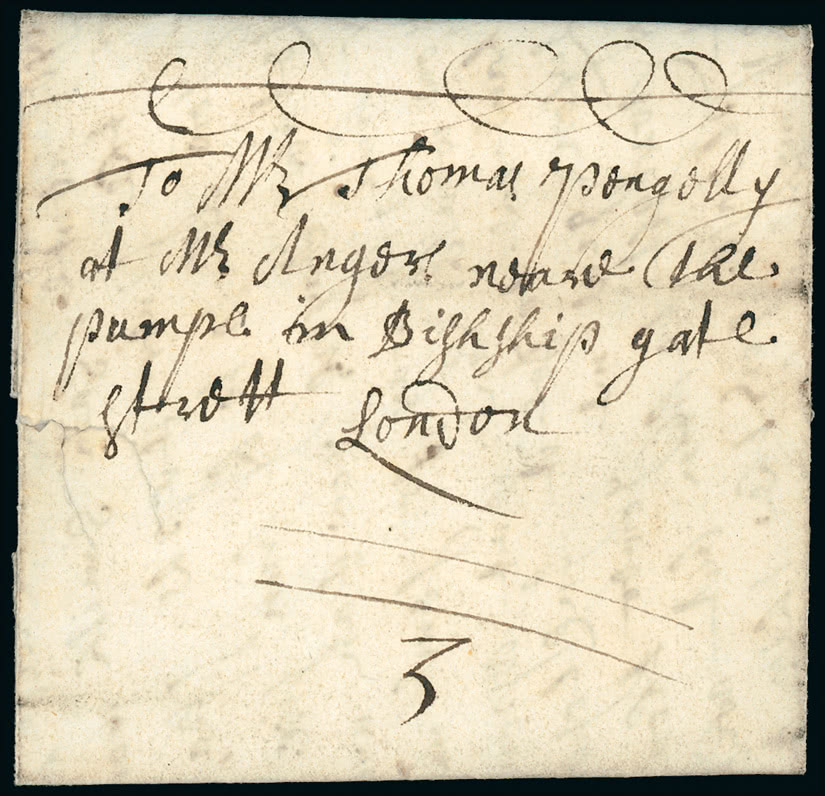 To Mr Thomas Pengelly
at Mr Angers neare the
pumpe in Bishship gate
strett London
3